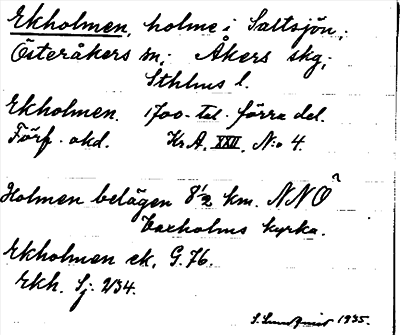 Ekholmen, holme i Saltsjön;
Österåkers sn; Åkers skg;
Sthlms l.
Ekholmen. 1700-tal. förra del.
Förf. okd. Kr.A. XXII. N:o 4.
Holmen belägen 8 1/2 km. NNO
Vaxholms kyrka.
Ekholmen ek. G.76.
Ekh. Sj: 234.
S. Lundqvist 1935.